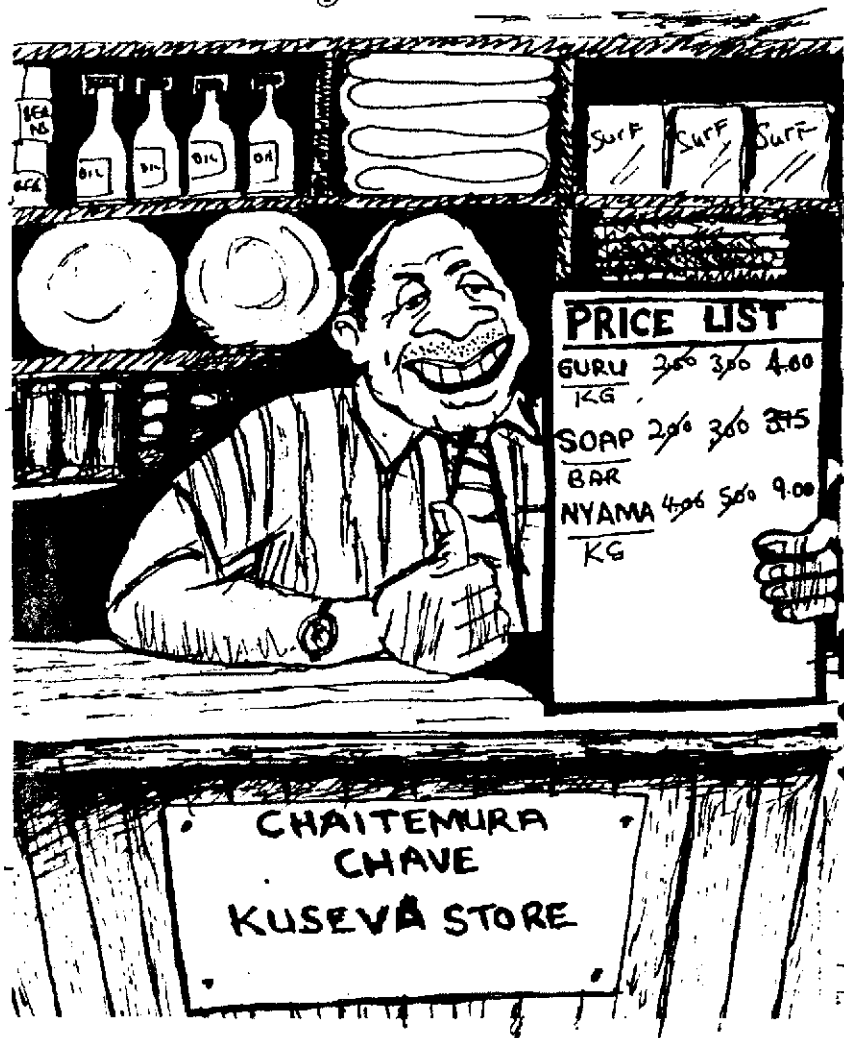 BEA
NS
OIL
OIL
OIL
OIL
Surf
Surf
Surf
PRICE LIST
GURU 2,00 3,00 4.00
KG
SOAP 2,00 3,00 3.75
BAR
NYAMA 4,00 5,00 9.00
KG
CHAITEMURA
CHAVE
KUSEVA STORE